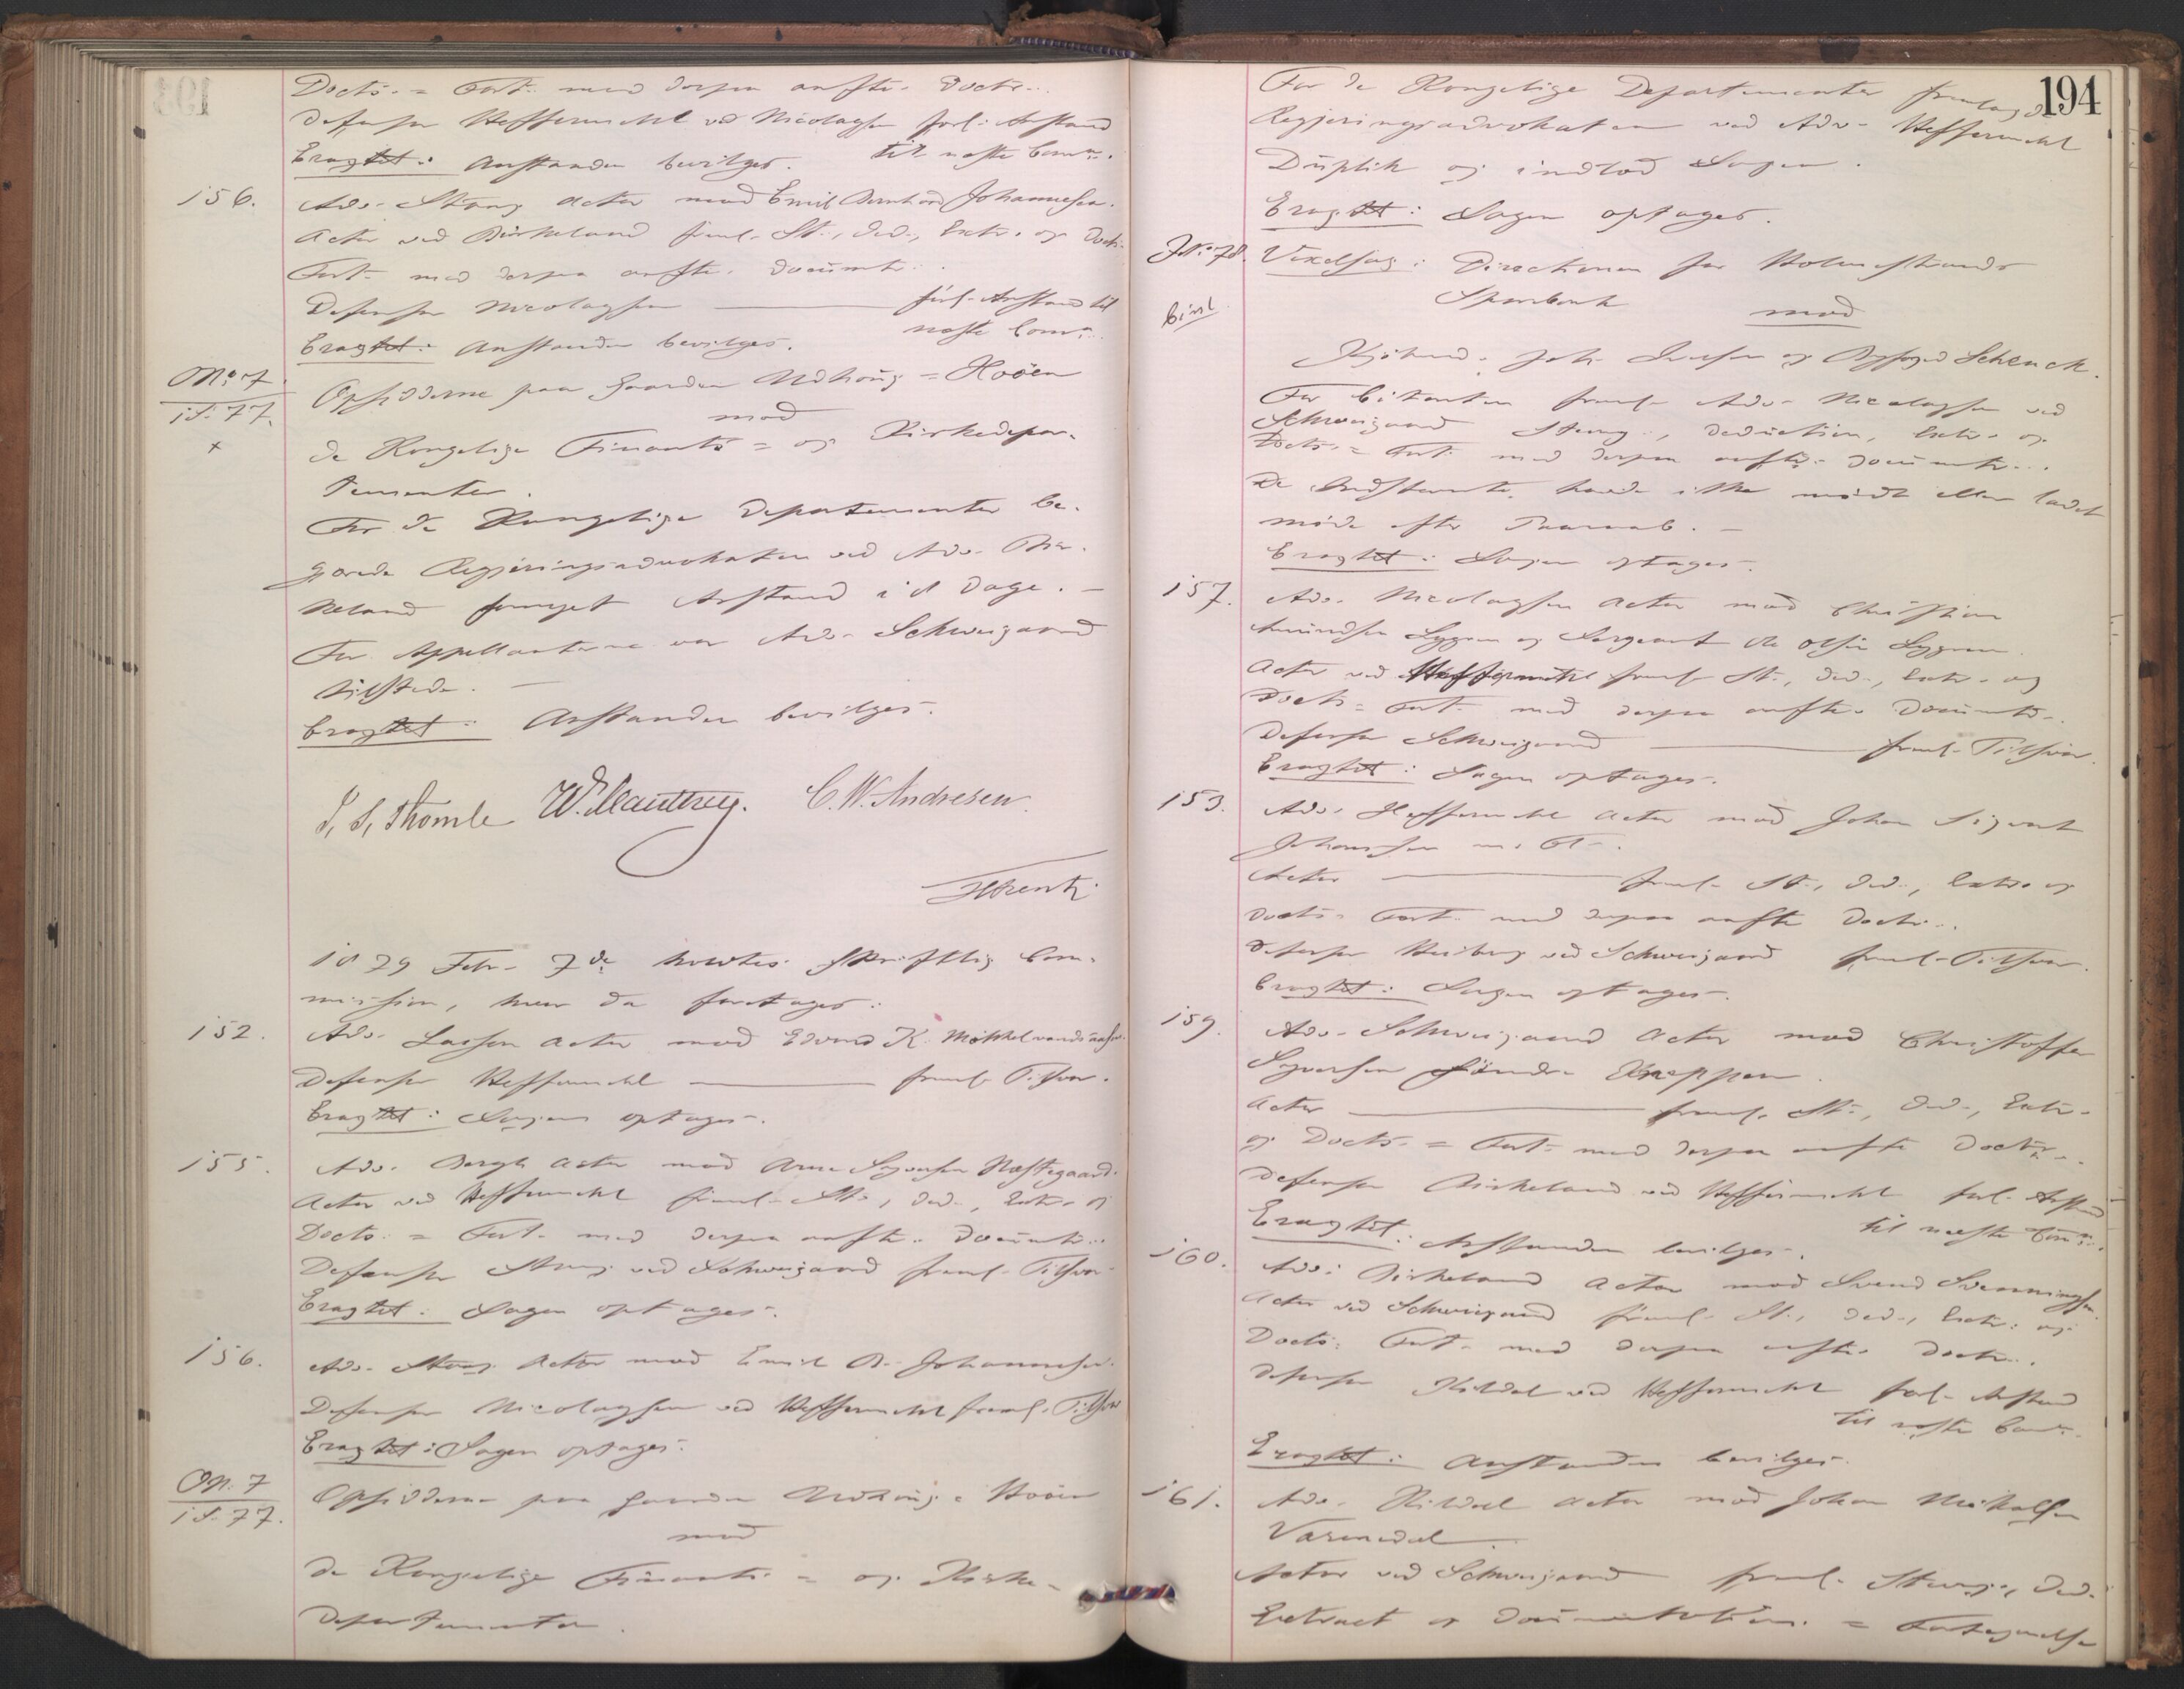 Docts. = Fort. med derpaa anførte Doctr.
Defensor Heffermehl ved Nicolaysen forl. Anstand
Eragtet: Anstanden bevilges. til næste Comn.
156. Adv. Stang Actor mod Emil Bernhard Johannesen.
Actor ved Birkeland freml. St., Ded., Extr. og Docts.
Fort. med derpaa anførte Documtr.
Defensor Nicolaysen — forl. Anstand til
næste Comn.
Eragtet: Anstanden bevilges.
ON: 7
18 77. Opsidderne paa Gaarden = Hoøen
mod
x de Kongelige Finants = og Kirkedepar-
tementer.
For de Kongelige Departementer be-
gjærede Regjeringsadvokaten ved Adv. Bir-
keland fornyet Anstand i 8 Dage. —
For Appellanterne var Adv. Schweigaard
tilstede. —
Eragtet: Anstanden bevilges.
C. W. Andresen
1879 Febr. 7de holdtes skriftlig Com-
mission, hvor da foretages:
152. Adv. Lassen Actor mod Edvard K.
Defensor Heffermehl — freml. Tilsvar.
Eragtet: Sagen optages.
155. Adv. Bergh Actor mod Arne Syversen
Actor ved Heffermehl freml. St., Ded., Extr. og
Docts. = Fort. med derpaa anførte Documtr.
Defensor Stang ved Schweigaard freml. Tilsvar
Eragtet: Sagen optages.
156. Adv. Stang Actor mod Emil B. Johannesen.
Defensor Nicolaysen ved Heffermehl freml. Tilsvar
Eragtet: Sagen optages.
ON. 7
18 77. Opsidderne paa Gaarden = Hoøen
mod
de Kongelige Finants = og Kirke-
departementer.
194
For de Kongelige Departementer fremlagde
Regjeringsadvokaten ved Adv. Heffermehl
Duplik og indlod Sagen.
Eragtet: Sagen optages.
J.N. 78. Vexelsag: Directionen for Holmestrands
Sparebank
Civil mod
Kjøbmd. Joh. Iversen og Schenck.
For Citanten freml. Adv. Nicolaysen ved
Schweigaard Stevng., Deduction, Extr. og
Docts. = Fort. med derpaa anførte Documtr.
De Indstevnte havde ikke mødt eller ladet
møde efter Paaraab. —
Eragtet: Sagen optages.
157. Adv. Nicolaysen Actor mod Christian
Amundsen Lygren og Sergeant Ole Olsen Lygren.
Actor ved Heffermehl freml. St., Ded., Extr. og
Docts. = Fort. med derpaa anførte Documtr.
Defensor Schweigaard — freml. Tilsvar.
Eragtet: Sagen optages.
153. Adv. Heffermehl Actor mod Johan Sigvart
Johannsen m. Fl.
Actor — freml. St., Ded., Extr. og
Docts. Fort. med derpaa anførte Doctr.
Defensor Heiberg ved Schweigaard freml. Tilsvar.
Eragtet: Sagen optages.
159. Adv. Schweigaard Actor mod Christoffer
Syversen søndre
Actor — freml. St., Ded., Extr.
og Docts. = Fort. med derpaa anførte Doctr.
Defensor Birkeland ved Heffermehl forl. Anstand
til næste Comn.
Eragtet: Anstanden bevilges.
160. Adv. Birkeland Actor mod Svend Svenningsen
Actor ved Schweigaard freml. St., Ded., Extr. og
Docts. Fort. med derpaa anførte Doctr.
Defensor Kildal ved Heffermehl forl. Anstand
til næste Comn.
Eragtet: Anstanden bevilges.
161. Adv. Kildal Actor mod Johan Mikalsen
Actor ved Schweigaard freml. Stevng., Ded.
Extract og Documentations = Fortegnelse